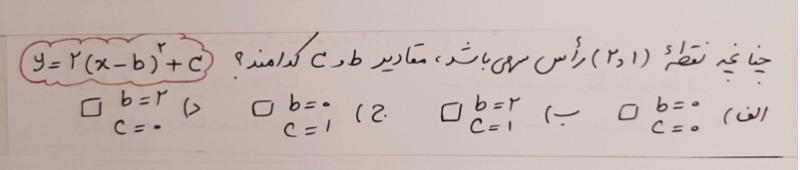 چنانچه نقطهٔ (۲،۱) رأس سهمی باشد، مقادیر b و c کدامند؟ y=۲(x-b)^۲+c
الف) b=۰ c=۰ □ ب) b=۲ c=۱ □ ج) b=۰ c=۱ □ د) b=۲ c=۰ □